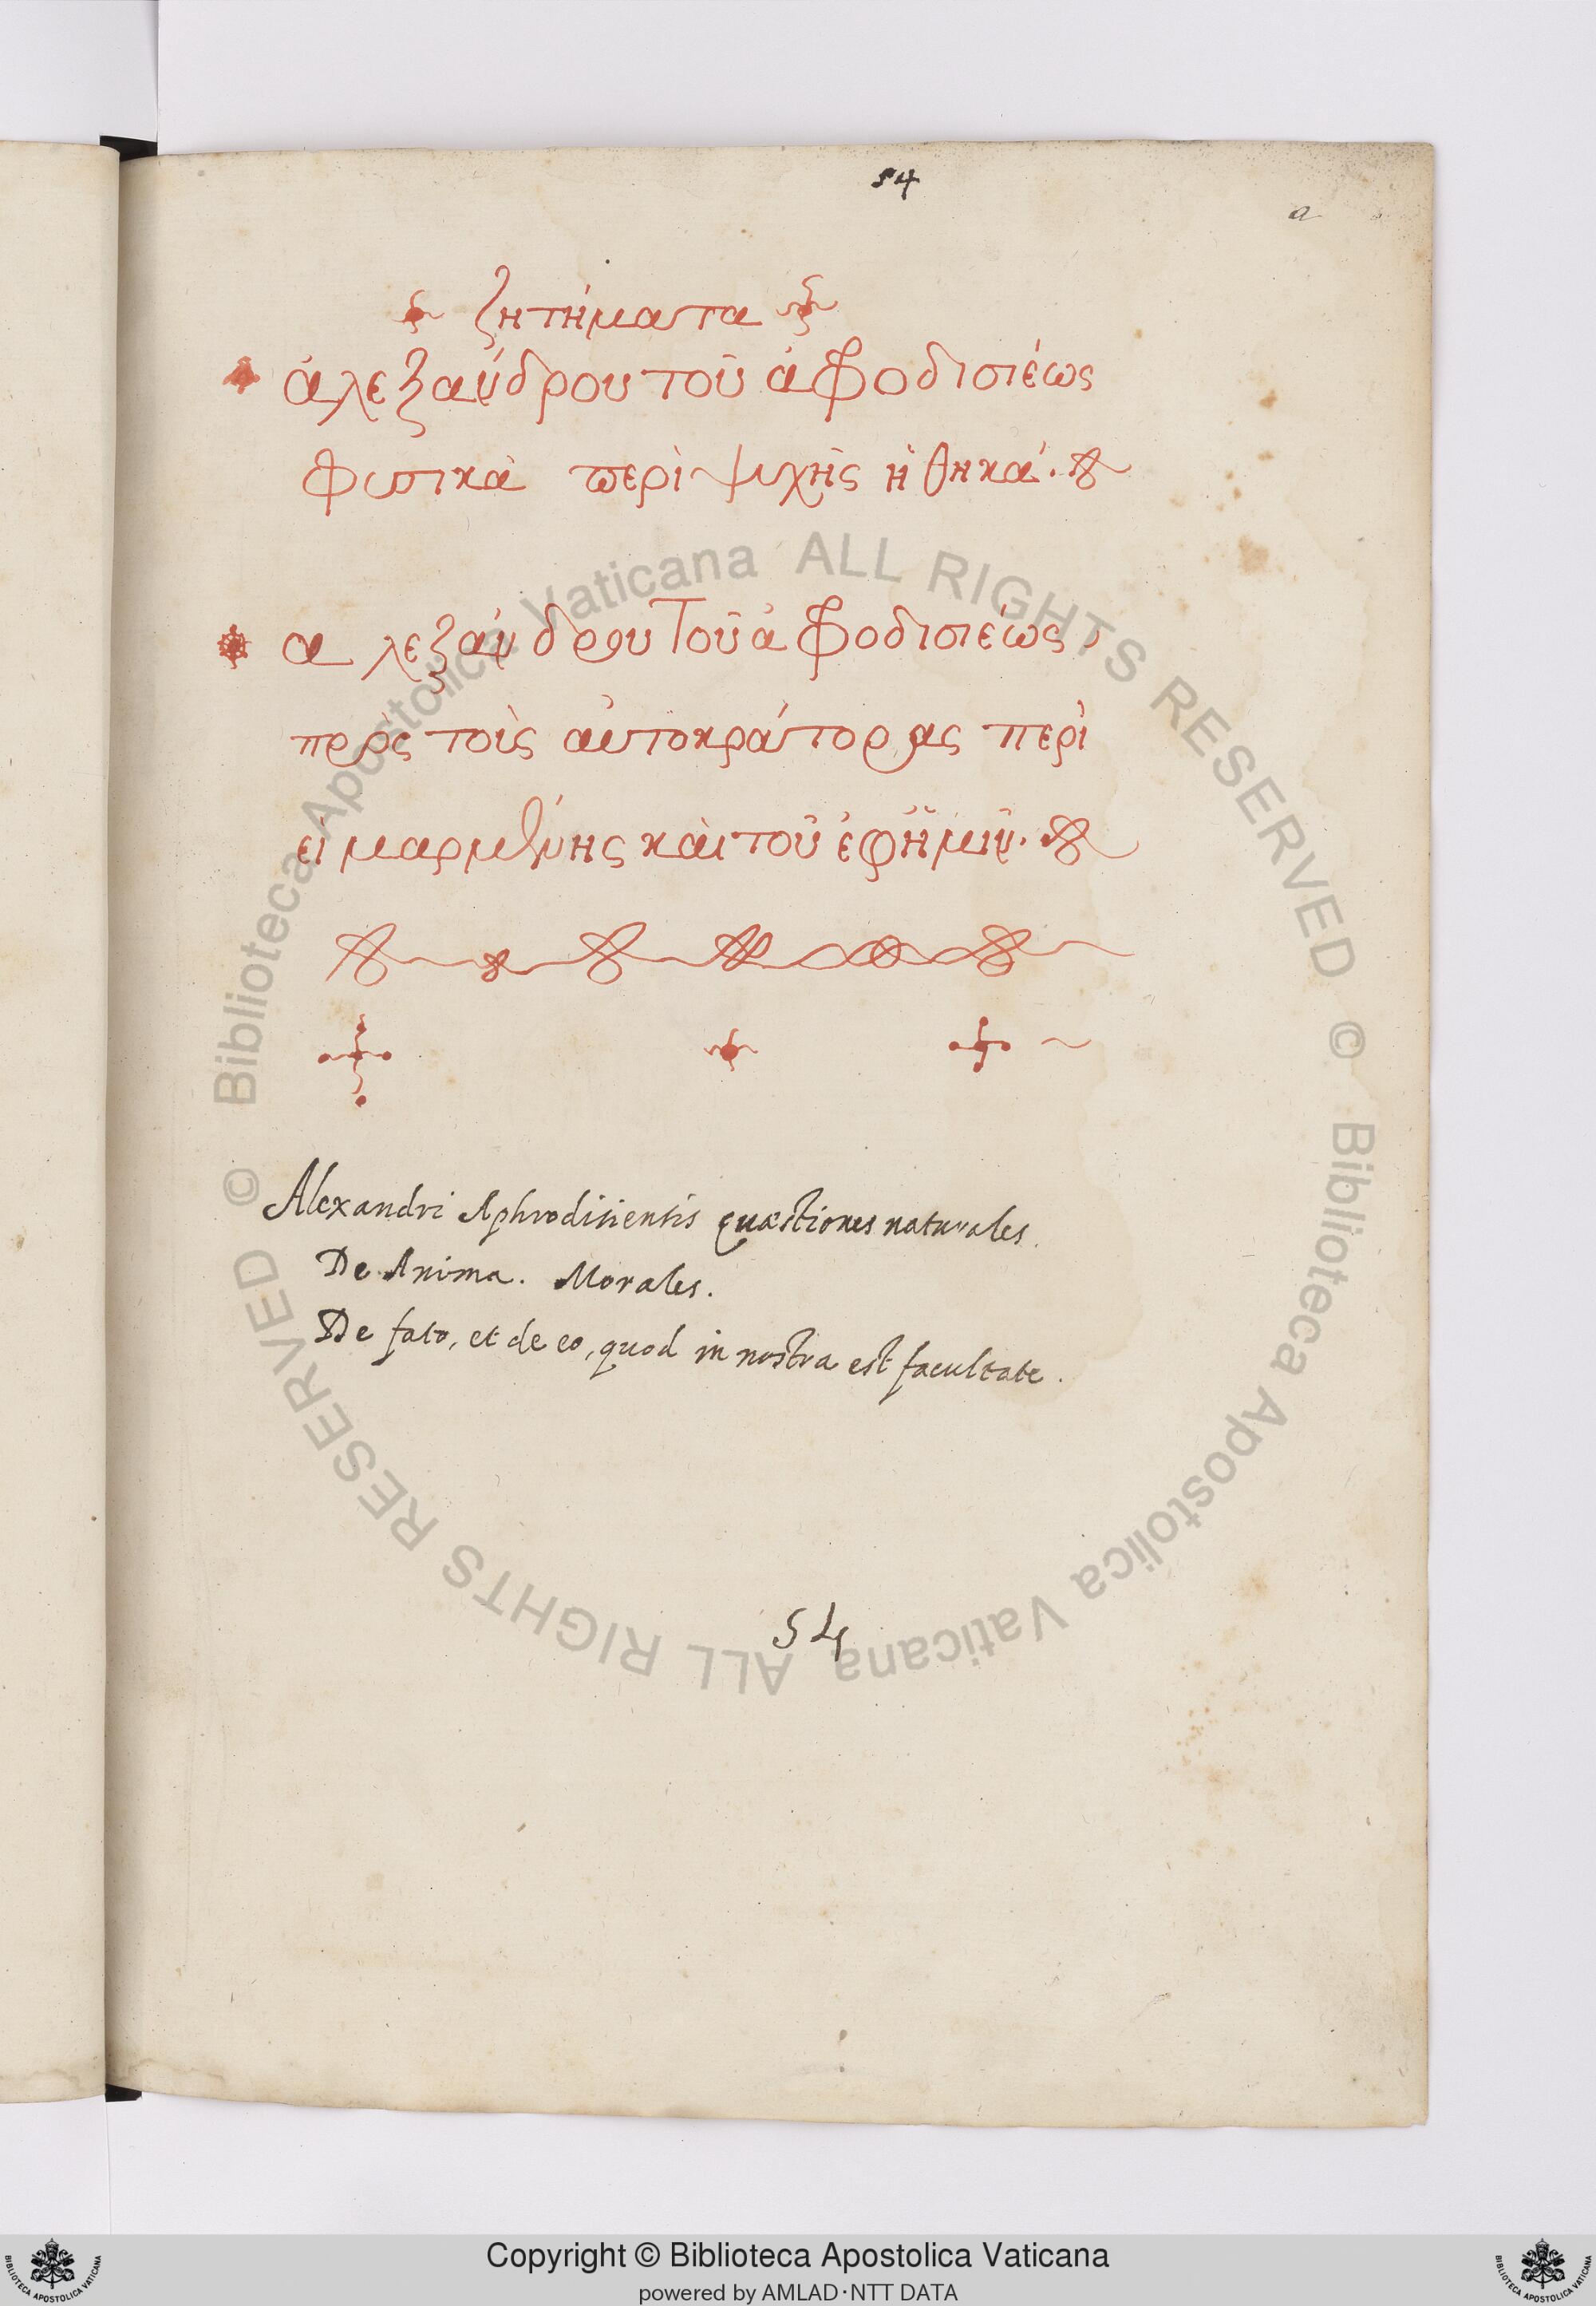 54
a
ζητήματα
ἀλεξάνδρου τοῦ ἀφροδισιέως
φυσικὰ περὶ ψυχῆς ἠθηκά.
αλεξάνδρου τοῦ ἀφροδισιέως
πρὸς τοὺς αὐτοκράτορας περὶ
εἱμαρμένης καὶ τοῦ ἐφ ἡμῖν.
Alexandri Aphrodisiensis quæstiones naturales.
De Anima. Morales.
De fato, et de eo, quod in nostra est facultate.
54
© Biblioteca Apostolica Vaticana ALL RIGHTS RESERVED
© Biblioteca Apostolica Vaticana ALL RIGHTS RESERVED
Copyright © Biblioteca Apostolica Vaticana
powered by AMLAD·NTT DATA
BIBLIOTECA APOSTOLICA VATICANA
BIBLIOTECA APOSTOLICA VATICANA